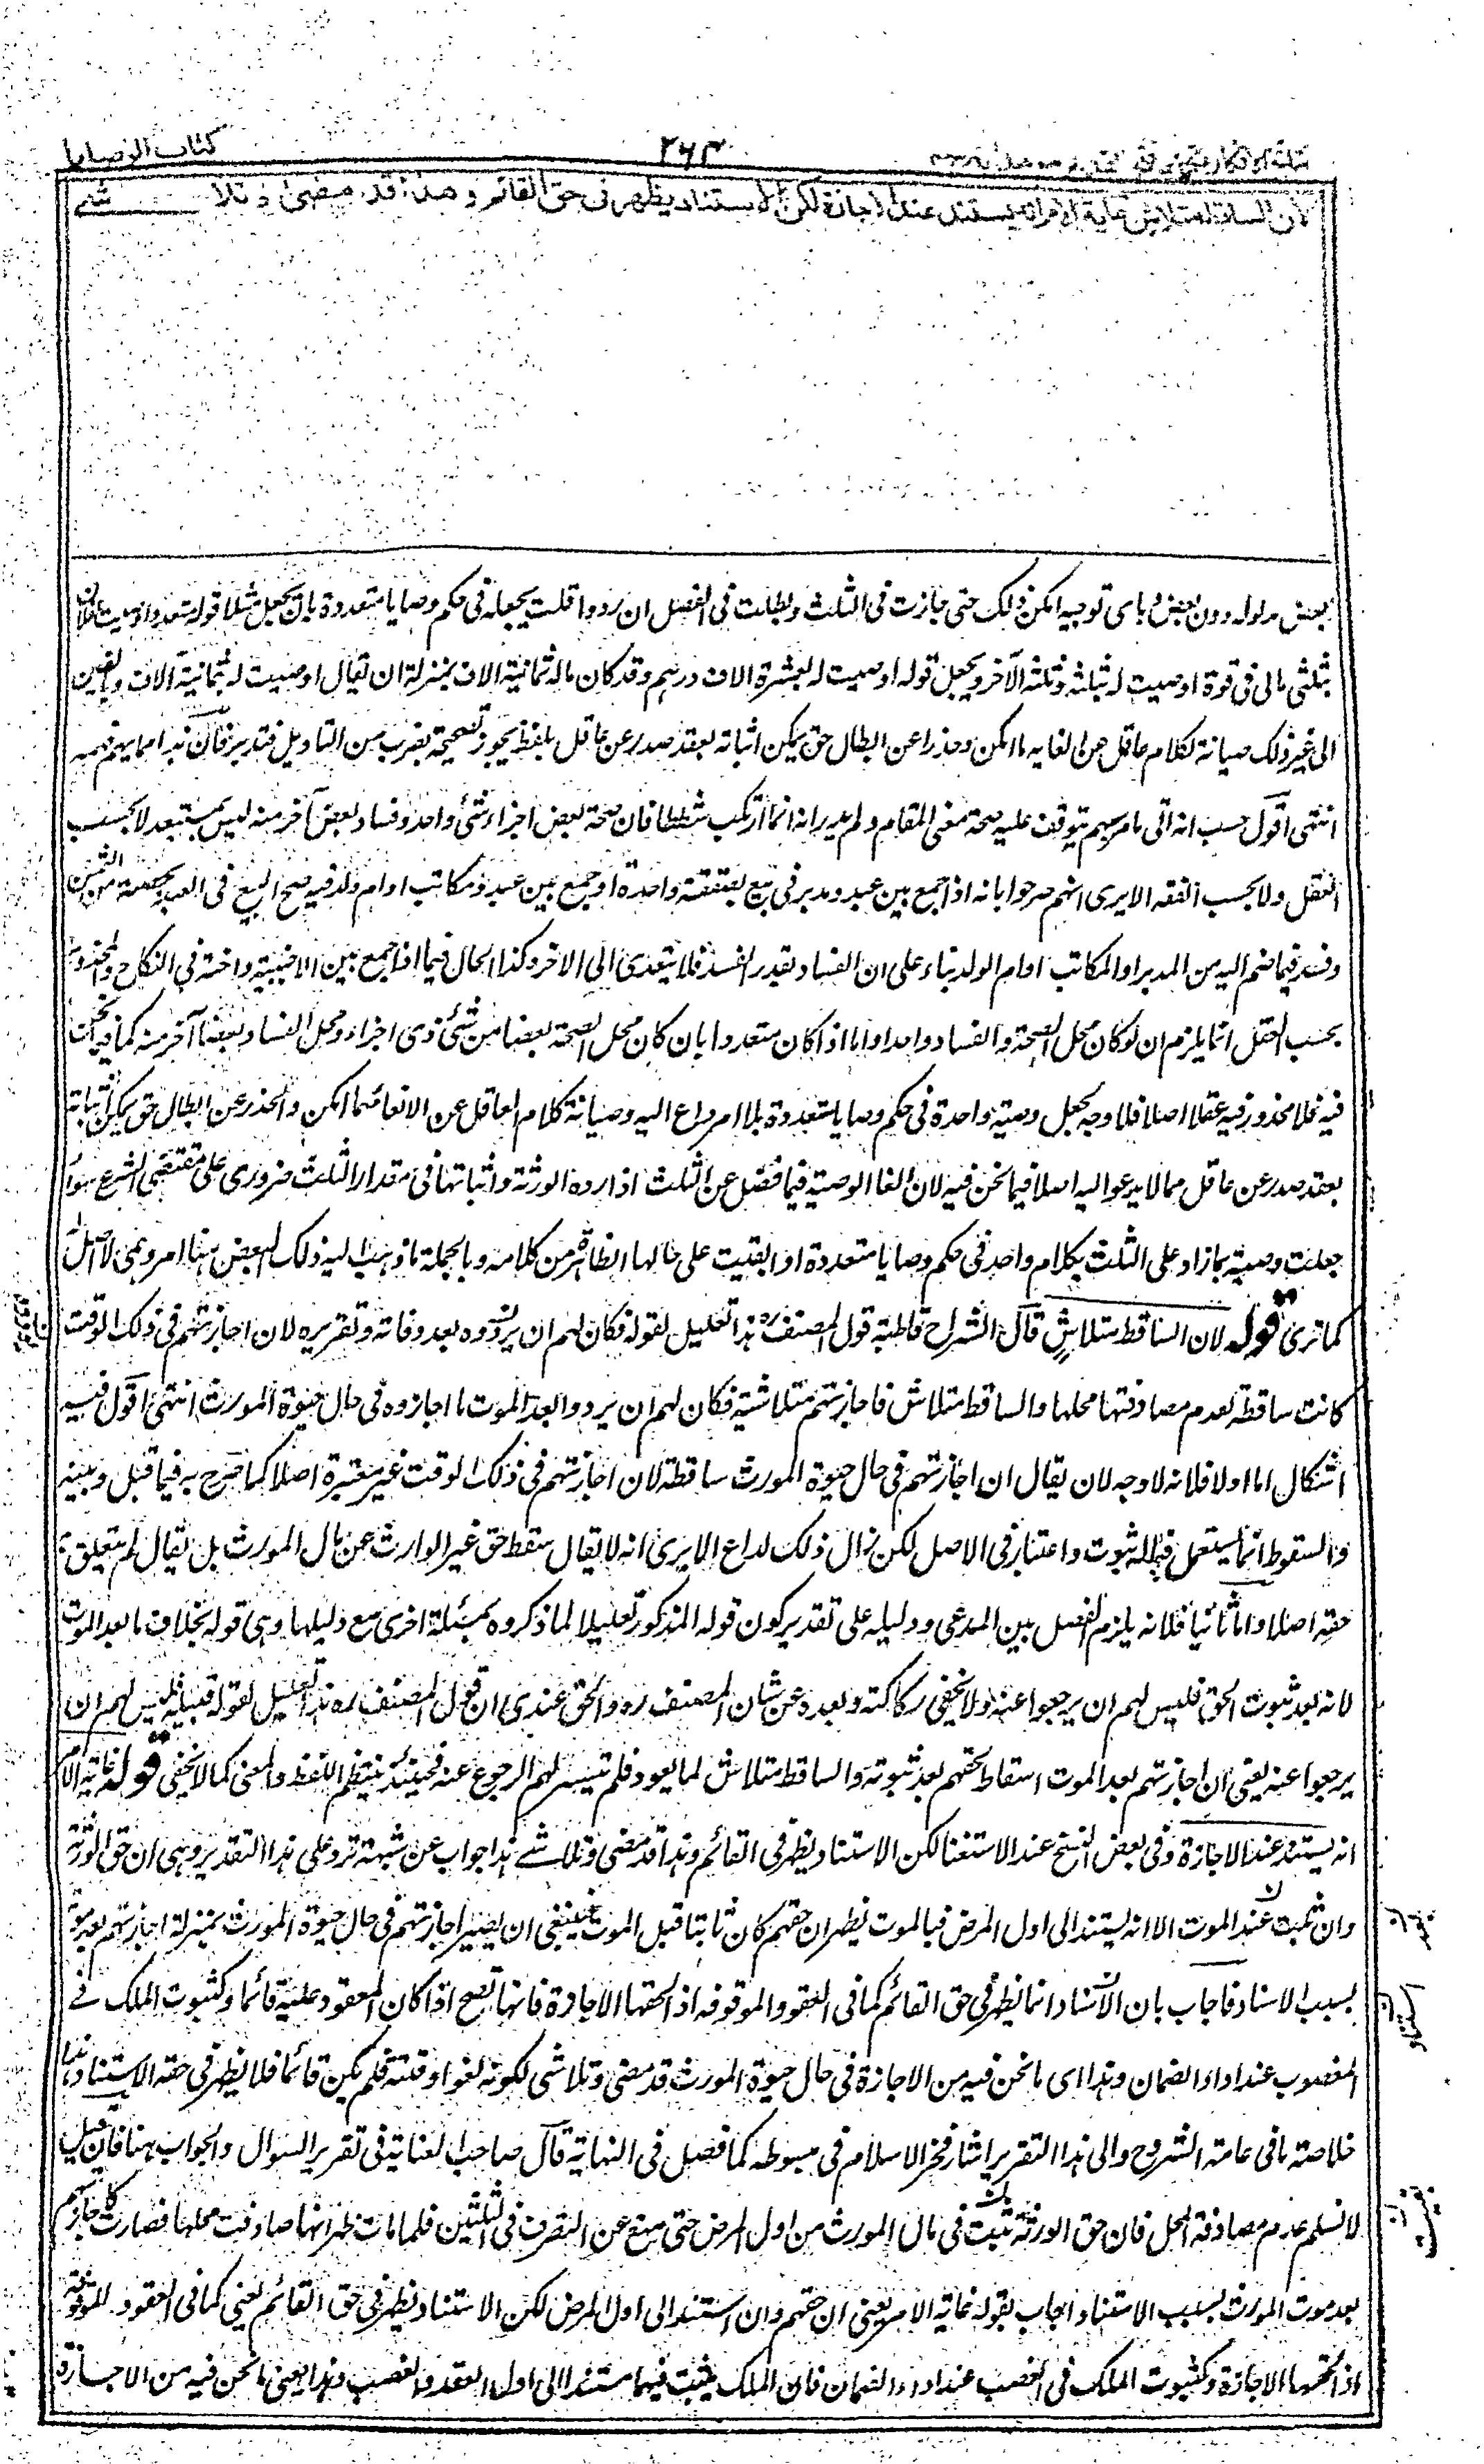 كتاب الوصايا
٢٦٣
لان الساقط متلاش غاية الامر انه يستند عند الاجازة لكن الاستناد يظهر في حق القائم وهذا قد مضى وتلاشى
بعض مدلوله دون بعض وباى توجيه امكن ذلك حتى جازت فى الثلث وبطلت فى الفضل ان ردوا قلت بجعله فى حكم وصايا متعددة بان يجعل مثلا قوله اوصيت لفلان
بثلثى مالى فى قوة اوصيت له بثلثه وثلثه الآخر ويجعل قوله اوصيت له بعشرة الاف درهم وقد كان ماله ثمانية الاف بمنزلة ان يقال اوصيت له بثمانية الاف وبالفين
الى غير ذلك صيانة لكلام عاقل عن الغايه ما امكن وحذرا عن ابطال حق يمكن اثباته بعقد صدر عن عاقل بلفظ يجوز تصحيحه بضرب من التاويل فتدبر فان هذا مما يهم فهمه
انتهى اقول حسب انه اتى بامر مهم يتوقف عليه صحة معنى المقام ولم يدر انه انما ارتكب شططا فان صحة بعض اجزاء شئ واحد وفساد بعض آخر منه ليس بمستبعد لا بحسب
العقل ولا بحسب الفقه الا يرى انهم صرحوا بانه اذا جمع بين عبد ومدبر فى بيع بصفقة واحدة او جمع بين عبد ومكاتب او ام ولد فيه صح البيع فى العبد بحصته من الثمن
وفسد فيما ضم اليه من المدبر او المكاتب او ام الولد بناء على ان الفساد بقدر المفسد فلا يتعدى الى الاخر وكذا الحال فيما اذا جمع بين الاجنبية واخته فى النكاح والمحذور
بحسب العقل انما يلزم ان لو كان محل الصحة والفساد واحدا واما اذا كان متعددا بان كان محل الصحة بعضا من شئ ذى اجزاء ومحل الفساد بعضا آخر منه كما فيما نحن
فيه فلا محذور فيه عقلا اصلا فلا وجه لجعل وصية واحدة فى حكم وصايا متعددة بلا امر داع اليه وصيانة كلام العاقل عن الالغاء مهما امكن والحذر عن ابطال حق يمكن اثباته
بعقد صدر عن عاقل مما لا يدعو اليه اصلا فيما نحن فيه لان الغا الوصية فيما فضل عن الثلث اذا رده الورثة واثباتها فى مقدار الثلث ضرورى على مقتضى الشرع سواء
جعلت وصية بما زاد على الثلث بكلام واحد فى حكم وصايا متعددة او ابقيت على حالها الظاهر من كلامه وبالجملة ما ذهب اليه ذلك البعض هنا امر وهمى لا اصل له
كما ترى قوله لان الساقط متلاش قال الشراح قاطبة قول المصنف ره هذا تعليل لقوله فكان لهم ان يردوه بعد وفاته وتقريره لان اجازتهم فى ذلك الوقت
كانت ساقطة لعدم مصادفتها محلها والساقط متلاش فاجازتهم متلاشية فكان لهم ان يردوا بعد الموت ما اجازوه فى حال حيوة المورث انتهى اقول فيه
اشكال اما اولا فلانه لا وجه لان يقال ان اجازتهم فى حال حيوة المورث ساقطة لان اجازتهم فى ذلك الوقت غير معتبرة اصلا كما صرح به فيما قبل وبينه
والسقوط انما يستعمل فيما له ثبوت واعتبار فى الاصل لكن زال ذلك لداع الا يرى انه لا يقال سقط حق غير الوارث عن مال المورث بل يقال لم يتعلق به
حقه اصلا واما ثانيا فلانه يلزم الفصل بين المدعى ودليله على تقدير كون قوله المذكور تعليلا لما ذكروه بمسئلة اخرى مع دليلها وهى قوله بخلاف ما بعد الموت
لانه بعد ثبوت الحق فليس لهم ان يرجعوا عنه ولا يخفى ركاكته وبعده عن شان المصنف ره والحق عندى ان قول المصنف ره هذا تعليل لقوله قبيله فليس لهم ان
يرجعوا عنه يعنى ان اجازتهم بعد الموت اسقاط لحقهم بعد ثبوته والساقط متلاش لما يعود فلم يتيسر لهم الرجوع عنه فحينئذ ينتظم اللفظ والمعنى كما لا يخفى قوله غاية الامر
انه يستند عند الاجازة وفى بعض النسخ عند الاستغنا لكن الاستناد يظهر فى القائم وهذا قد مضى وتلاشى هذا جواب عن شبهة ترد على هذا التقدير وهى ان حق الورثة
وان ثبت عند الموت الا انه يستند الى اول المرض فبالموت يظهر ان حقهم كان ثابتا قبل الموت فينبغى ان يصير اجازتهم فى حال حيوة المورث بمنزلة اجازتهم بعد موته
بسبب الاسناد فاجاب بان الاستناد انما يظهر فى حق القائم كما فى العقود الموقوفه اذ الحقها الاجازة فانها تصح اذا كان المعقود عليه قائما وكثبوت الملك فى
المغصوب عند اداء الضمان وهذا اى ما نحن فيه من الاجازة فى حال حيوة المورث قد مضى وتلاشى لكونه لغوا وقته فلم يكن قائما فلا يظهر فى حقه الاستناد هذا
خلاصة ما فى عامة الشروح والى هذا التقرير اشار فخر الاسلام فى مبسوطه كما فصل فى النهاية قال صاحب العناية فى تقرير السوال والجواب هنا فان قيل
لا نسلم عدم مصادفة المحل فان حق الورثة ثبت فى مال المورث من اول المرض حتى منع عن التصرف فى الثلثين فلما مات ظهر انها صادفت محلها فصارت كاجازتهم
بعد موت المورث بسبب الاستناد اجاب بقوله غاية الامر يعنى ان حقهم وان استند الى اول المرض لكن الاستناد يظهر فى حق القائم يعنى كما فى العقود الموقوفة
اذا لحقها الاجازة وكثبوت الملك فى الغصب عند اداء الضمان فان الملك يثبت فيهما مستندا الى اول العقد والغصب وهذا يعنى ما نحن فيه من الاجازة